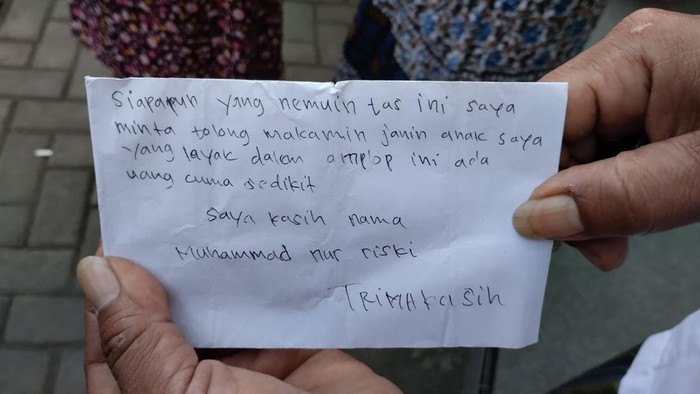 Siapapun yang nemuin tas ini saya
minta tolong makamin janin anak saya
yang layak dalam amplop ini ada
uang cuma sedikit
saya kasih nama
Muhammad nur riski
TRIMAkasih